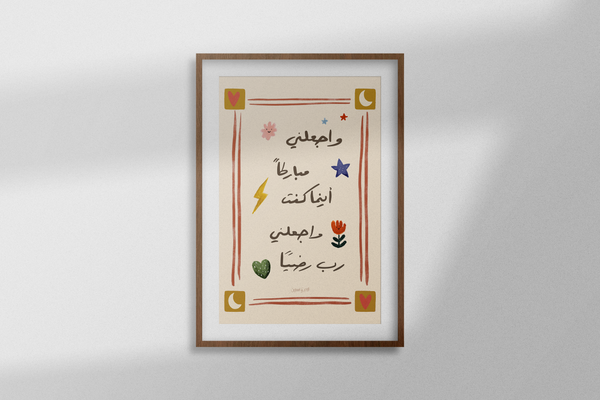 واجعلني
مباركاً
أينما كنت
واجعلني
رب رضيًا